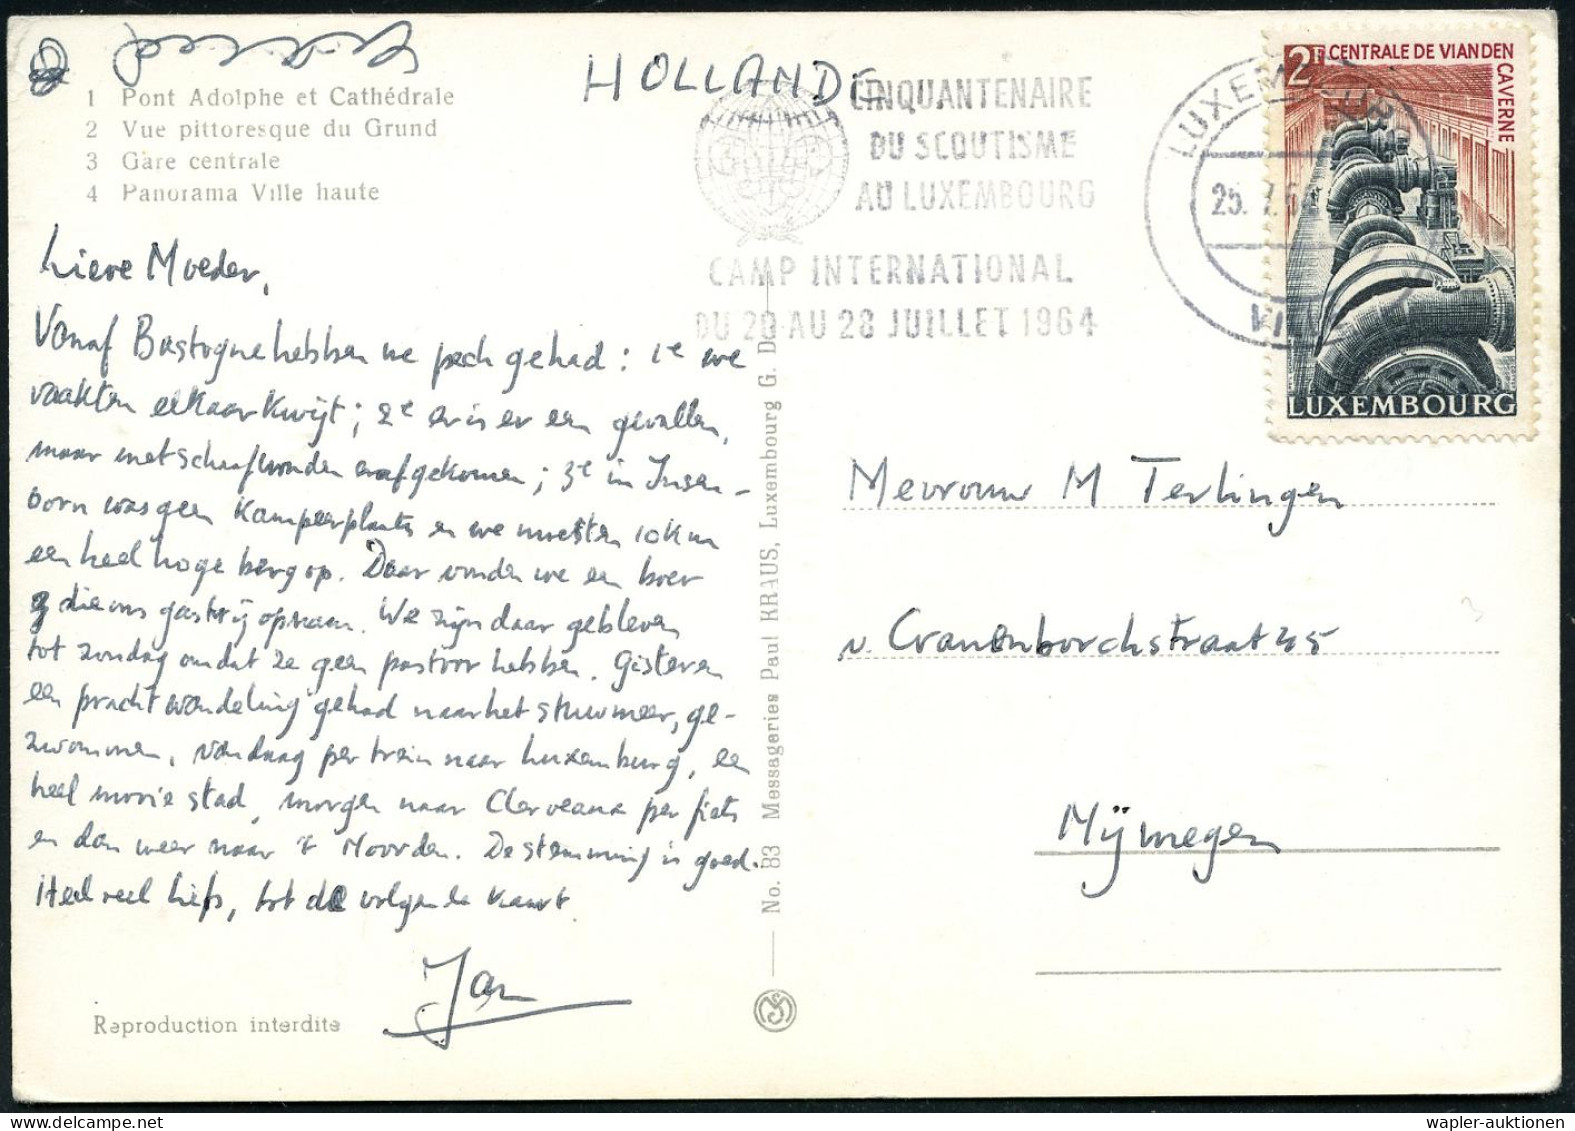 HOLLANDE
1 Pont Adolphe et Cathédrale
2 Vue pittoresque du Grund
3 Gare centrale
4 Panorama Ville haute
CINQUANTENAIRE
DU SCOUTISME
AU LUXEMBOURG
CAMP INTERNATIONAL
DU 20 AU 28 JUILLET 1964
LUXEMBOURG
25. 7. 64
2F CENTRALE DE VIANDEN
CAVERNE
LUXEMBOURG
Lieve Moeder,
Vanaf Bastogne hebben we pech gehad: 1e we
raakten elkaar kwijt; 2e er is er een gevallen,
maar met schaafwonden eraf gekomen; 3e in Insen-
born was geen Kampeerplaats en we moesten 10 km
een heel hoge berg op. Daar vonden we een boer
die ons gastvrij opnam. We zijn daar gebleven
tot zondag omdat ze geen pastoor hebben. Gisteren
een pracht wandeling gehad naar het stuwmeer, ge-
zwommen. Vandaag per trein naar Luxemburg, een
heel mooie stad, morgen naar per fiets
en dan weer naar 't Noorden. De stemming is goed.
Heel veel liefs, tot de volgende kaart.
Jan
Reproduction interdite
No. 83 Messageries Paul KRAUS, Luxembourg G. D.
Mevrouw M Terlingen
v. Cranenborchstraat 45
Nijmegen
wapler-auktionen